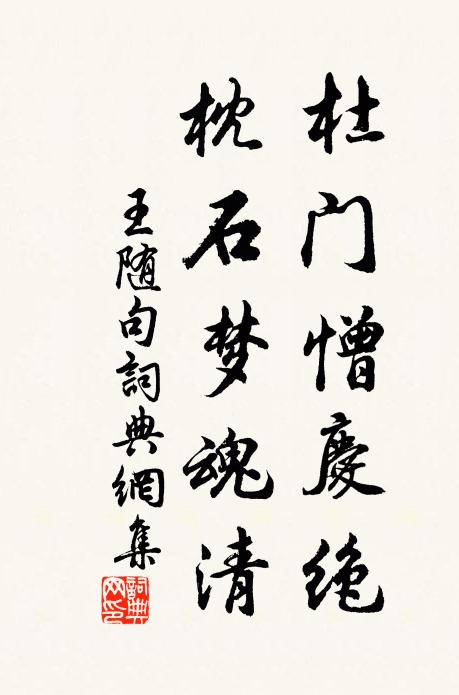 杜门憎慶绝
枕石梦魂清
王随句詞典網集
詞典
网印